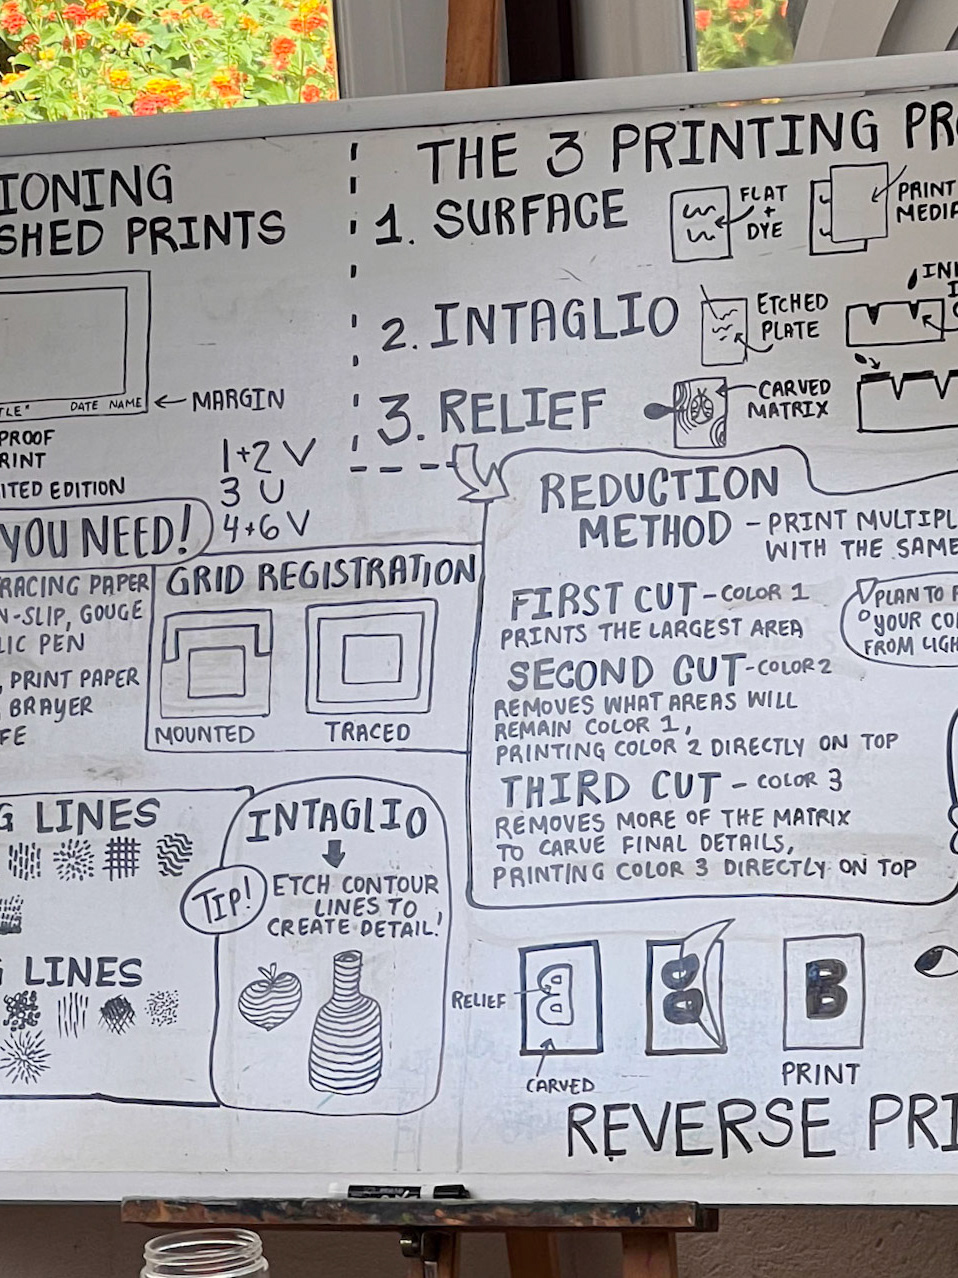 IONING
SHED PRINTS
TLE"
DATE NAME
← MARGIN
PROOF
RINT
ITED EDITION
1+2 V
3 U
4+6 V
YOU NEED!
RACING PAPER
N-SLIP, GOUGE
LIC PEN
, PRINT PAPER
BRAYER
FE
GRID REGISTRATION
MOUNTED
TRACED
G LINES
G LINES
INTAGLIO
TIP!
ETCH CONTOUR
LINES TO
CREATE DETAIL!
THE 3 PRINTING PRO
1. SURFACE
FLAT
+
DYE
PRINT
MEDIA
2. INTAGLIO
ETCHED
PLATE
INK
3. RELIEF
CARVED
MATRIX
REDUCTION
METHOD - PRINT MULTIPL
WITH THE SAME
FIRST CUT - COLOR 1
PRINTS THE LARGEST AREA
PLAN TO P
YOUR COL
FROM LIGH
SECOND CUT - COLOR 2
REMOVES WHAT AREAS WILL
REMAIN COLOR 1,
PRINTING COLOR 2 DIRECTLY ON TOP
THIRD CUT - COLOR 3
REMOVES MORE OF THE MATRIX
TO CARVE FINAL DETAILS,
PRINTING COLOR 3 DIRECTLY ON TOP
RELIEF
CARVED
B
PRINT
REVERSE PRI